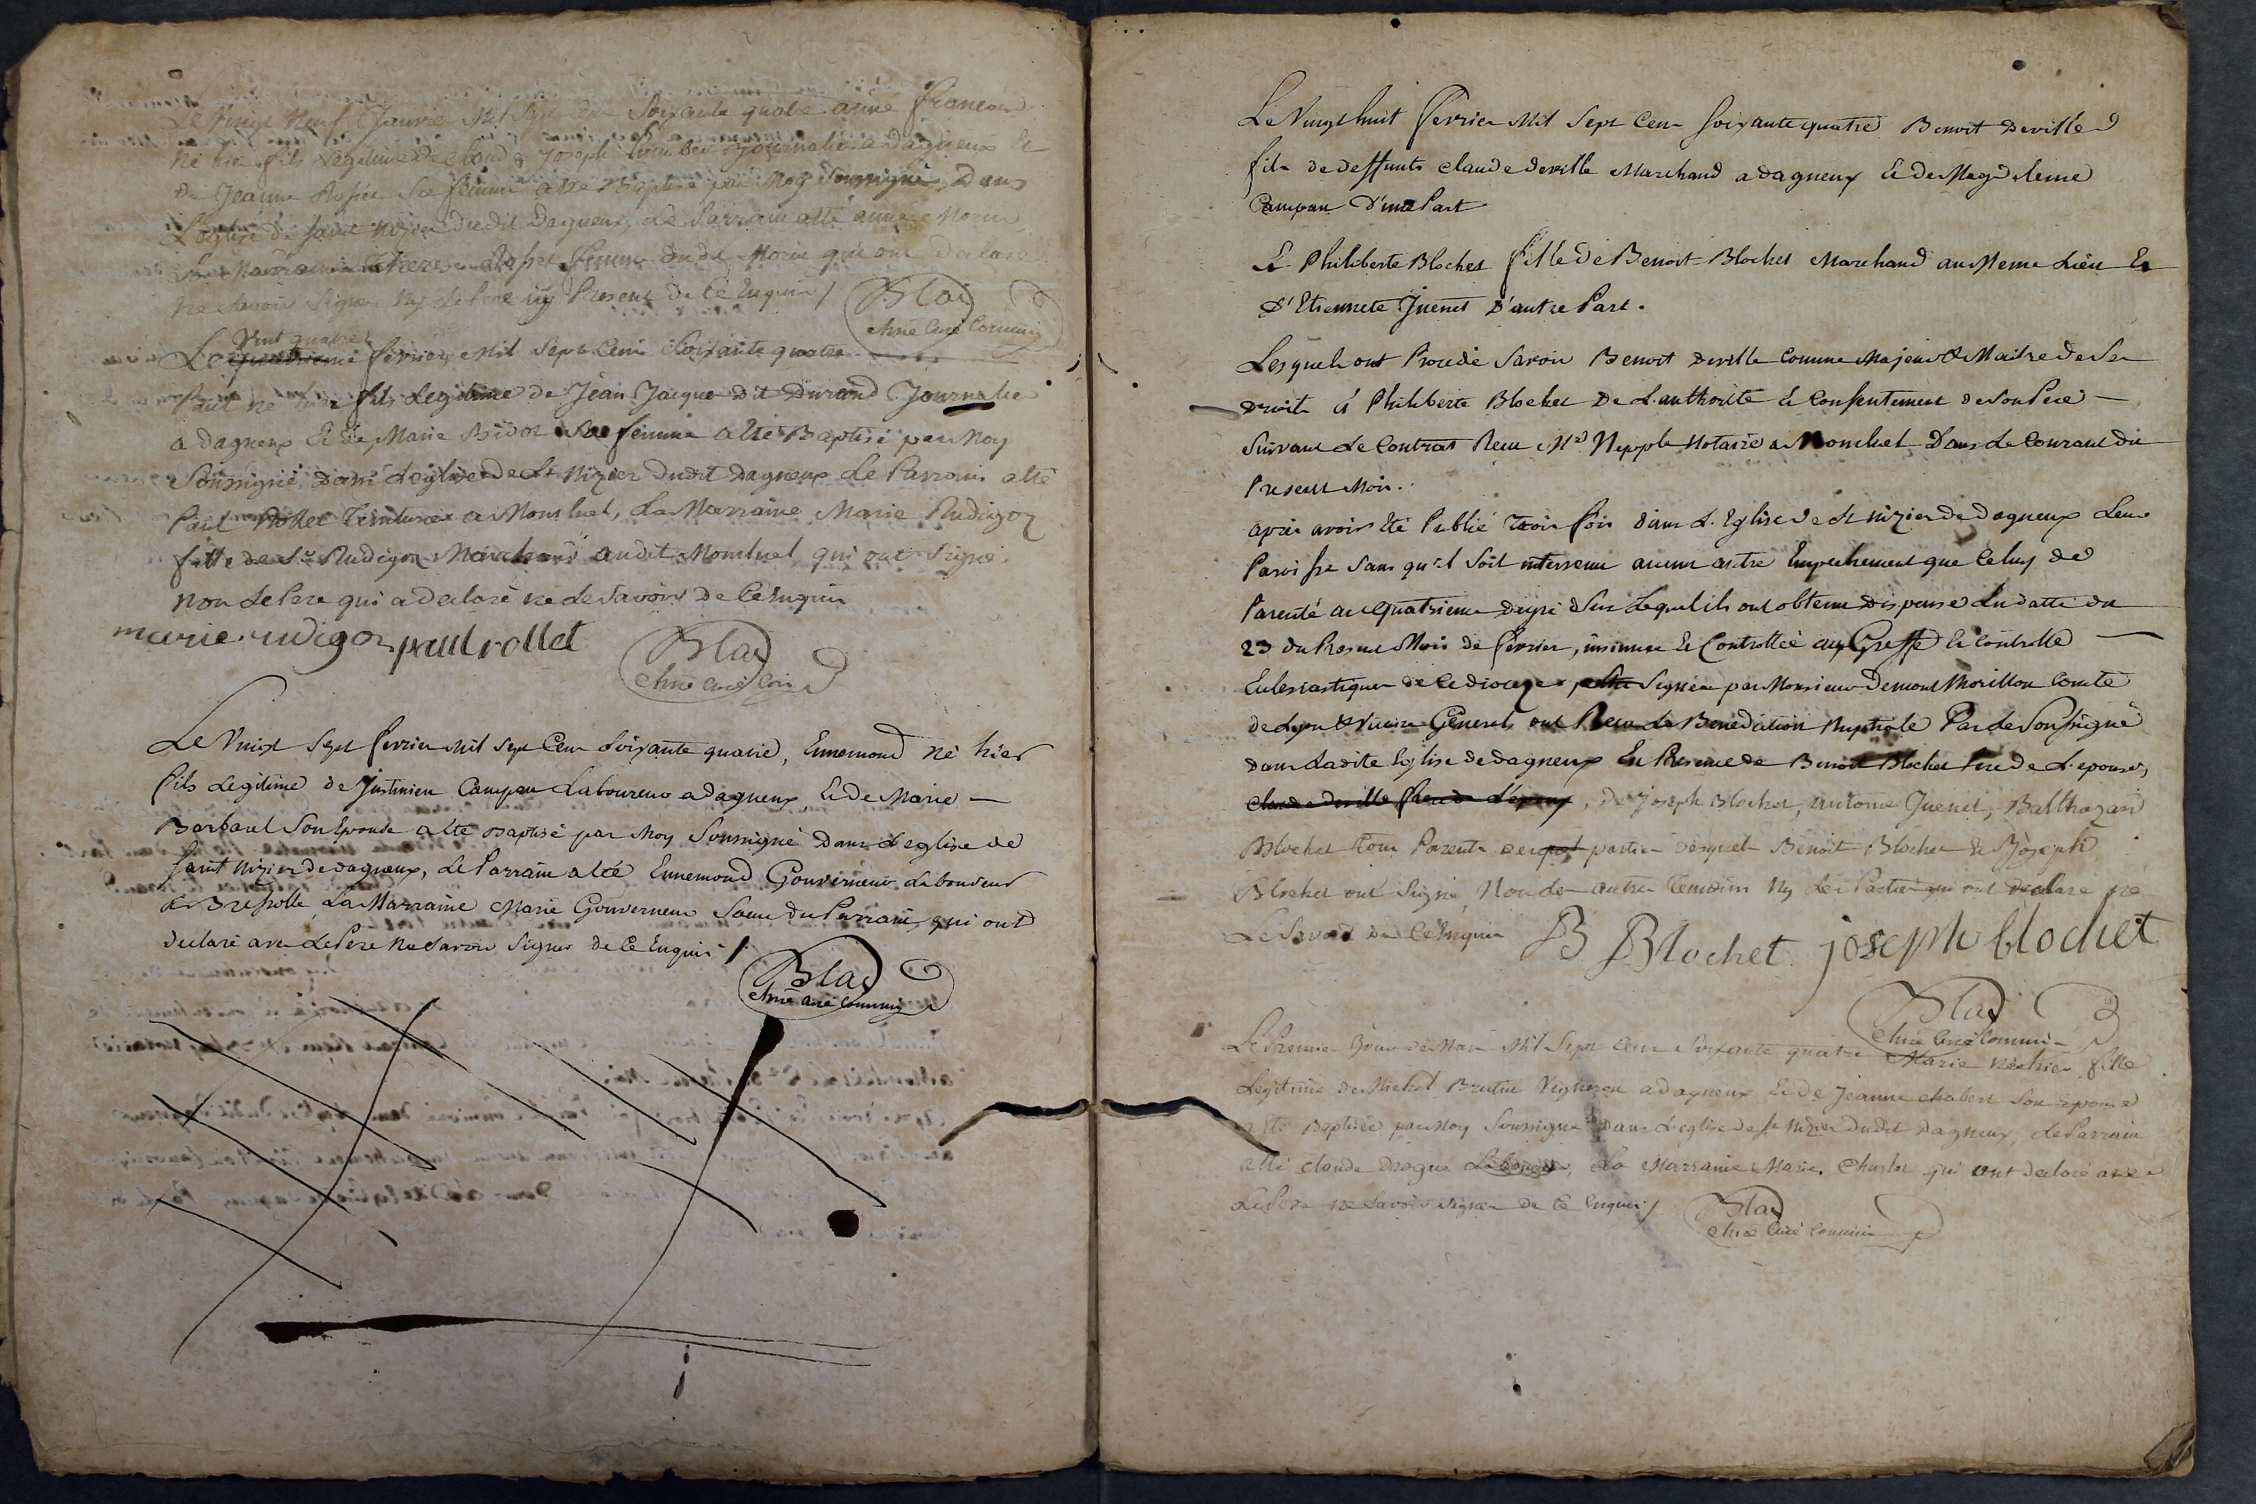 Le Vingt Neuf Janvier Mil Sept Cen Soixante quatre anné francois
né hier fils Legitime de Claude Joseph journalier a Dagneux Et
De Jeanne Sa femme a ete Baptisé par Moy Soussigné Dans
L'eglise de saint nizier dudit Dagneux, Le Parrain a eté Morin
La Marraine femme dudit Morin qui ont Declaré
ne Savoir Signer Ny Le Pere icy Present De Ce Enquis /
Blad
chne Curé Commis
Vint quatre
Le quatrieme fevrier Mil Sept Cent Soixante quatre
Paul né hier fils Legitime de Jean Jacque dit Durand Journalie
a dagneux Et de Marie Bidot Sa femme a eté Baptisé par Moy
Soussigné dans L'eglise de St Nizier Dudit Dagneux Le Parrain a eté
Paul Rollet Teinturier a Monluel, La Marraine Marie Rudigoz
fille de Sr Rudigoz Marchand audit Monluel qui ont Signé
Non Le Pere qui a declaré ne Le Savoir De Ce Enquis
marie rudigoz paul rollet
Blad
chne Curé Com
Le Vingt Sept fevrier Mil Sept Cen Soixante quatre, Ennemond né hier
fils Legitime de Justinien Campan Laboureur a dagneux, Et de Marie —
Barbaret Son Epouse a eté Baptisé par Moy Soussigné Dans L'eglise de
Saint Nizier de dagneux, Le Parrain a eté Ennemond Gouverneur Laboureur
de Bressolle La Marraine Marie Gouverneur Soeur du Parrain, qui ont
declaré avec Le Pere Ne Savoir Signer de Ce Enquis /
Blad
chne Curé Commis
Le Vingt huit fevrier Mil Sept Cen Soixante quatre Benoit Deville
fils de deffunts Claude Deville Marchand a dagneux Et de Magdeleine
Campan D'une Part
Et Philiberte Blochet fille de Benoit Blochet Marchand au Meme Lieu Et
D'Etiennete Juenet D'autre Part.
Lesquels ont Procedé Savoir Benoit Deville Comme Majeur & Maitre de Ses
droits Et Philiberte Blochet De L'authorité Et Consentement de Son Pere —
Suivant Le Contrat Recu Me Nepple Notaire a Monluel Dans Le Courant du
Present Mois.
apres avoir Eté Publié Trois fois dans L'Eglise de St nizier de Dagneux Leur
Paroisse Sans qu'il Soit intervenu aucun autre Empechement que Celuy de
Parenté au quatrieme degré Sur Lequel ils ont obtenu Dispense En datte du
23 du Present Mois de fevrier, insinuee Et Controllée au Greffe Et Controlle —
Eclesiastique de Ce dioceze, Signée par Monsieur De Montmorillon Comte
de Lyon & Vicaire General ont Recu La Benediction Nuptiale Par Le Soussigné
dans Ladite Eglise de dagneux En Presence de Benoit Blochet Pere de L'epouse,
Claude Deville frere de L'epoux, de Joseph Blochet, antoine Juenet, Balthazard
Blochet tous Parents des parties desquels Benoit Blochet & Joseph
Blochet ont Signé, Non Les autres temoins Ny Les Parties qui ont declaré ne
Le Savoir De Ce Enquis B Blochet joseph blochet
Blad
chne Curé Commis
Le Premier Jour de Mars Mil Sept Cen Soixante quatre Marie née hier fille
Legitime de Michel Vigneron a dagneux Et De Jeanne Chabert Son epouse
a eté Baptisée par Moy Soussigné Dans L'eglise de St Nizier Dudit Dagneux, Le Parrain
a eté Claude Laboureur, La Marraine Marie qui ont declaré avec
Le Pere ne Savoir Signer De Ce Enquis /
Blad
chne Curé Commis